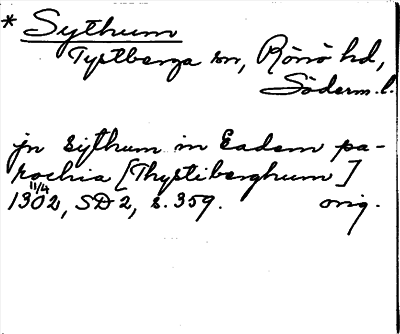 * Sythum
Tystberga sn, Rönö hd,
Söderm. l.
jn Sijthum in Eadem pa-
rochia [Thystibærghum]
11/4
1302, SD 2, s. 359. orig.